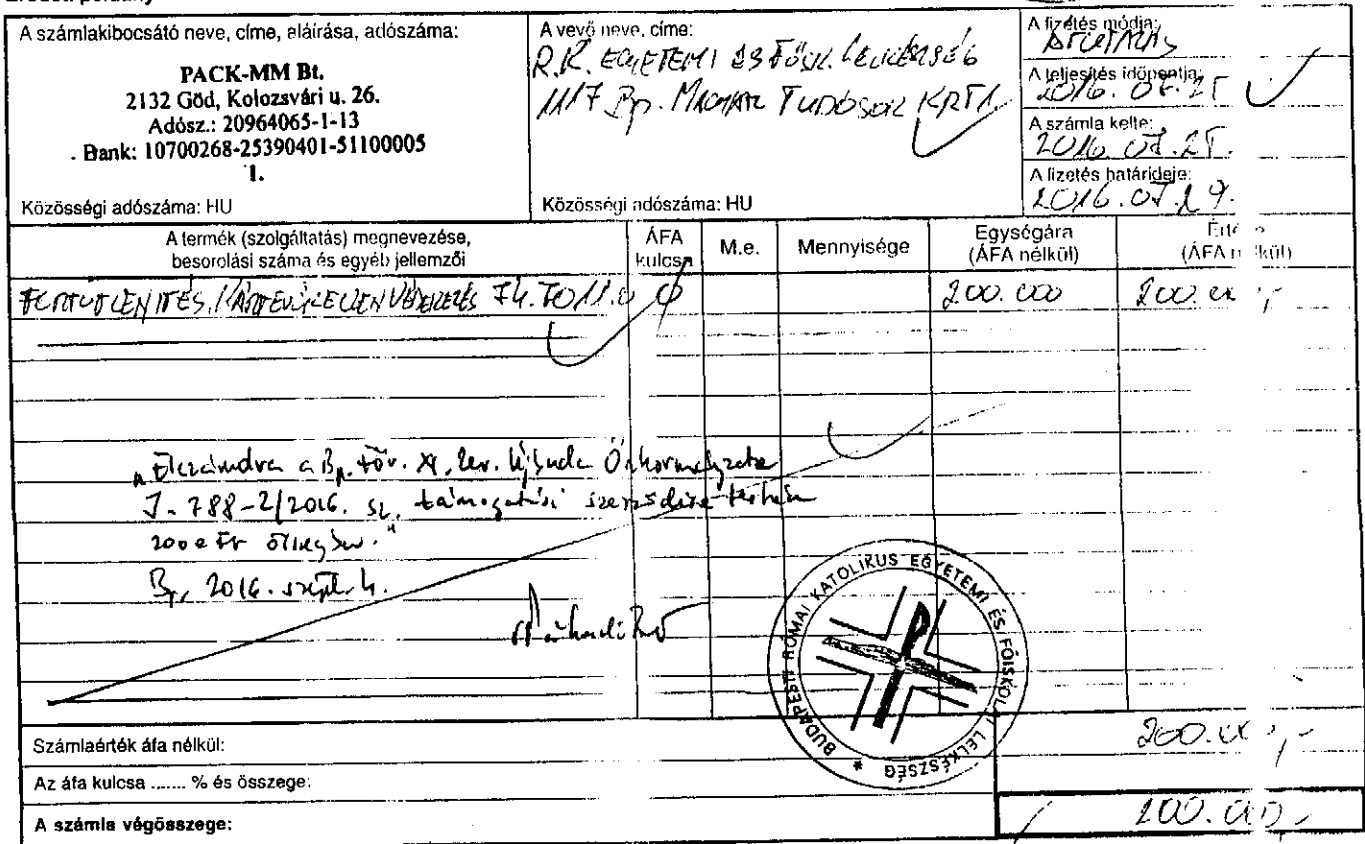 A számlakibocsátó neve, címe, aláírása, adószáma:
PACK-MM Bt.
2132 Göd, Kolozsvári u. 26.
Adósz.: 20964065-1-13
Bank: 10700268-25390401-51100005
1.
Közösségi adószáma: HU
A vevő neve, címe:
R.K. EGYETEMI ÉS FŐISK. LELKÉSZSÉG
1117 Bp. MAGYAR TUDÓSOK KRT 1.
Közösségi adószáma: HU
A fizetés módja:
ÁTUTALÁS
A teljesítés időpontja:
2016. 07. 25
A számla kelte:
2016. 07. 25.
A fizetés határideje:
2016. 07. 29.
A termék (szolgáltatás) megnevezése, besorolási száma és egyéb jellemzői
ÁFA kulcsa
M.e.
Mennyisége
Egységára (ÁFA nélkül)
(ÁFA nélkül)
200.000
"Elszámolva a Bp. Főv. XI. ker. Újbuda Önkormányzata
J-788-2/2016. sz. támogatási szerződése terhére
200 e Ft összegben."
Bp. 2016. szept. 4.
BUDAPESTI RÓMAI KATOLIKUS EGYETEMI ÉS FŐISKOLAI LELKÉSZSÉG *
Számlaérték áfa nélkül:
Az áfa kulcsa ....... % és összege:
A számla végösszege:
200.000,-